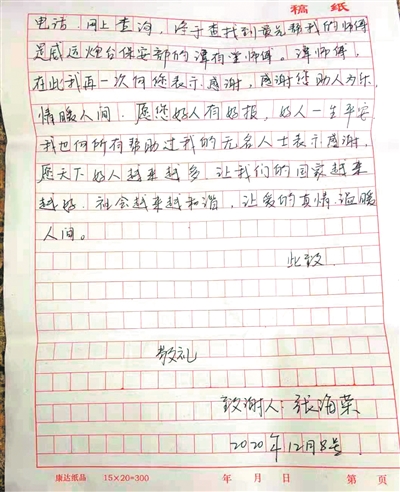 稿 纸
电话、网上查询，终于查找到最先帮我的师傅
是威运烟台保安部的谭有堂师傅。谭师傅，
在此我再一次向您表示感谢，感谢您助人为乐，
情暖人间。愿您好人有好报，好人一生平安
我也向所有帮助过我的无名人士表示感谢，
愿天下好人越来越多，让我们的国家越来
越好，社会越来越和谐，让爱的真情温暖
人间。
此致
敬礼
致谢人：张海荣
2020年12月8号
康达纸品 15×20=300 年 月 日 第 页